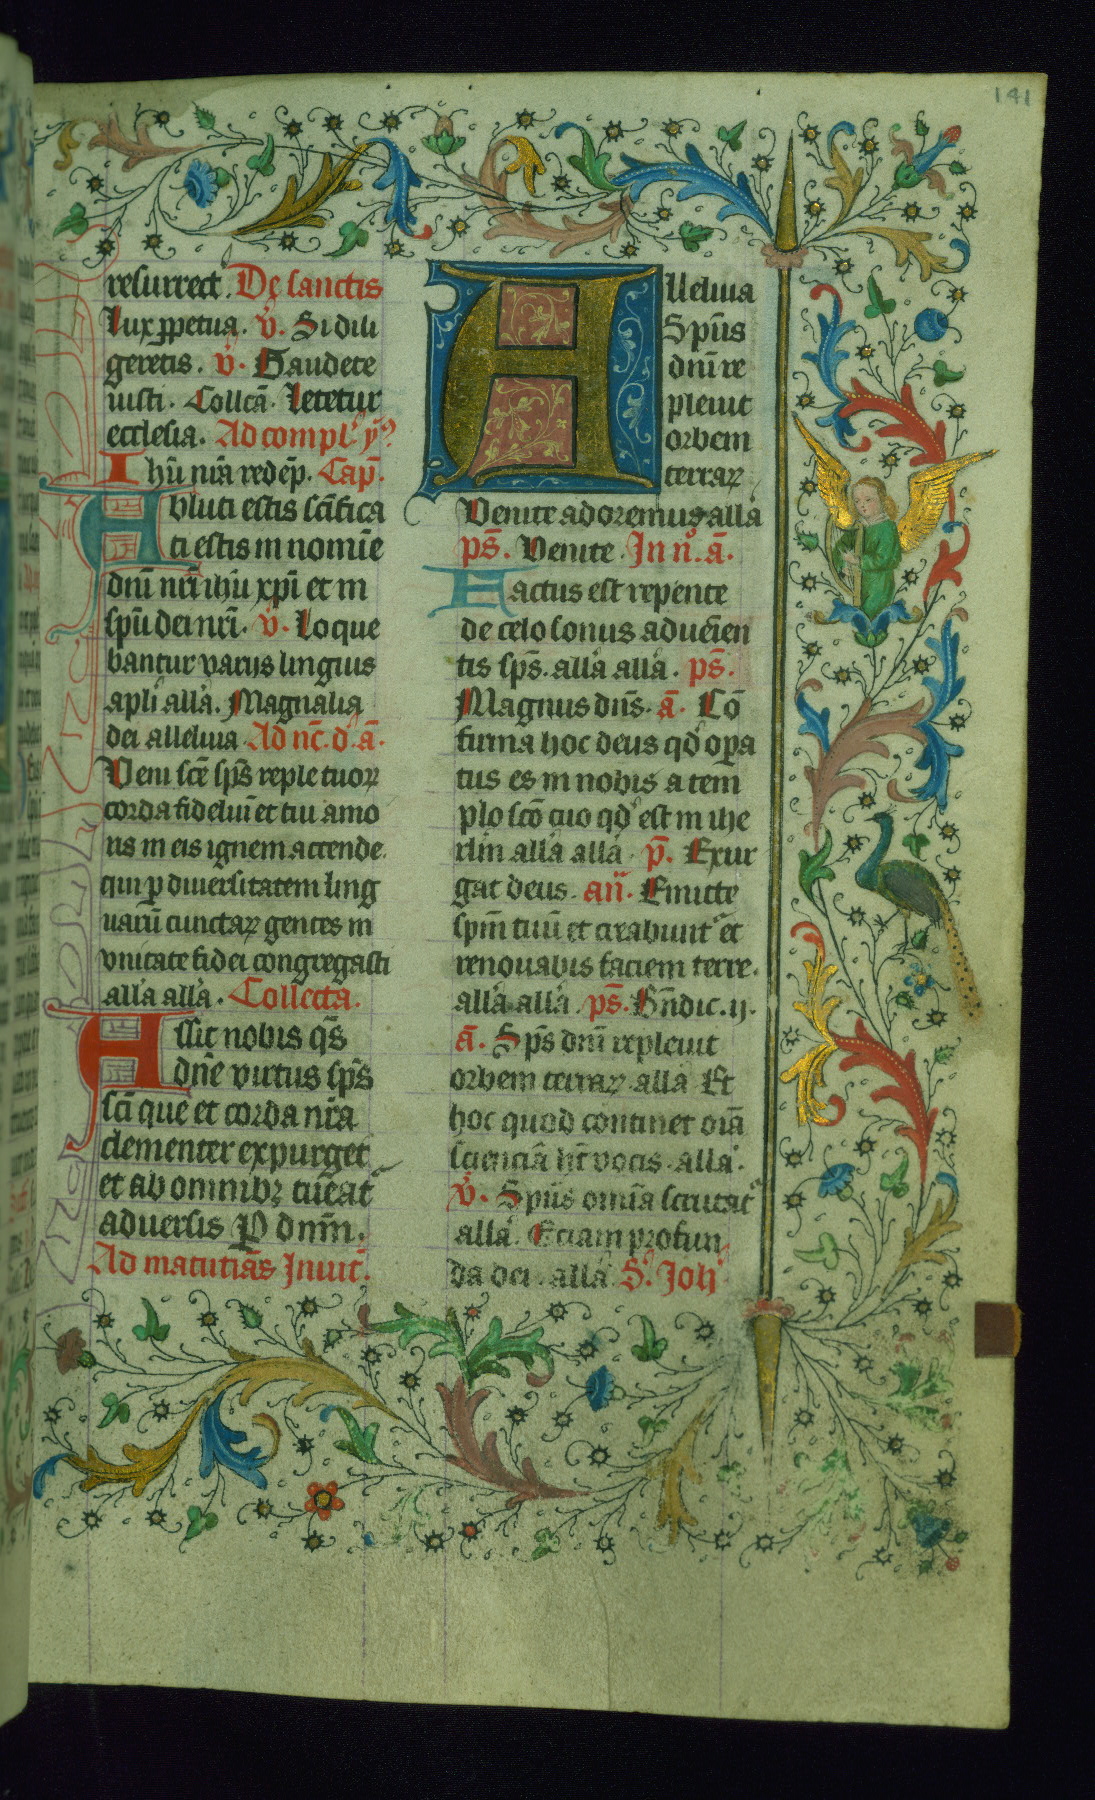 141
resurrect. De sanctis
Lux ꝑpetua. v̄. Si dili
geretis. v̄. Gaudete
iusti. Collcā. Letetur
ecclesia. Ad compl'. yꝰ
Ihū nrā redēp. Cap̄.
Abluti estis scīfica
ti estis in nomīe
dnī nrī ihū xp̄i et in
spū dei nrī. v̄. Loque
bantur varijs linguis
apli allā. Magnalia
dei alleluia. Ad nc̄. d. ā.
Veni scē sp̄s reple tuoꝝ
corda fideliū et tui amo
ris in eis ignem accende.
qui p diuersitatem ling
uarū cunctaꝝ gentes in
vnitate fidei congregasti
allā allā. Collecta.
Assit nobis qs̄
dn̄e virtus sp̄s
scī que et corda nrā
clementer expurget
et ab omnibꝫ tueat᷑
aduersis P dnm̄.
Ad matutīas Inuit̄.
Alleluia
Sp̄us
dnī re
pleuit
orbem
terraꝝ
Venite adoremus allā
ps̄. Venite. In n°. ā.
Factus est repente
de celo sonus aduēien
tis sp̄s. allā allā. ps̄.
Magnus dn̄s. ā. Cō
firma hoc deus qd̓ opa
tus es in nobis a tem
plo scō tuo qd̓ est in ihe
rlm̄ allā allā. p̄. Exur
gat deus. an̄. Emitte
spm̄ tuū et creabunt᷑ et
renouabis faciem terre.
allā allā. ps̄. Bn̄dic. ij.
ā. Sp̄s dnī repleuit
orbem terraꝝ allā Et
hoc quod continet oīa
scienciā ht̄ vocis. allā.
v̄. Sp̄us omīa scrutat᷑
allā. Eciam profun
da dei. allā S'. Joh'